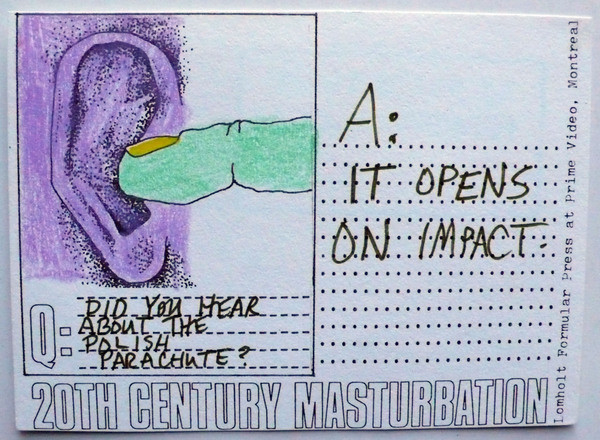 Q: DID YOU HEAR
ABOUT THE
POLISH
PARACHUTE?
A:
IT OPENS
ON IMPACT.
20TH CENTURY MASTURBATION
Lomholt Formular Press at Prime Video, Montreal